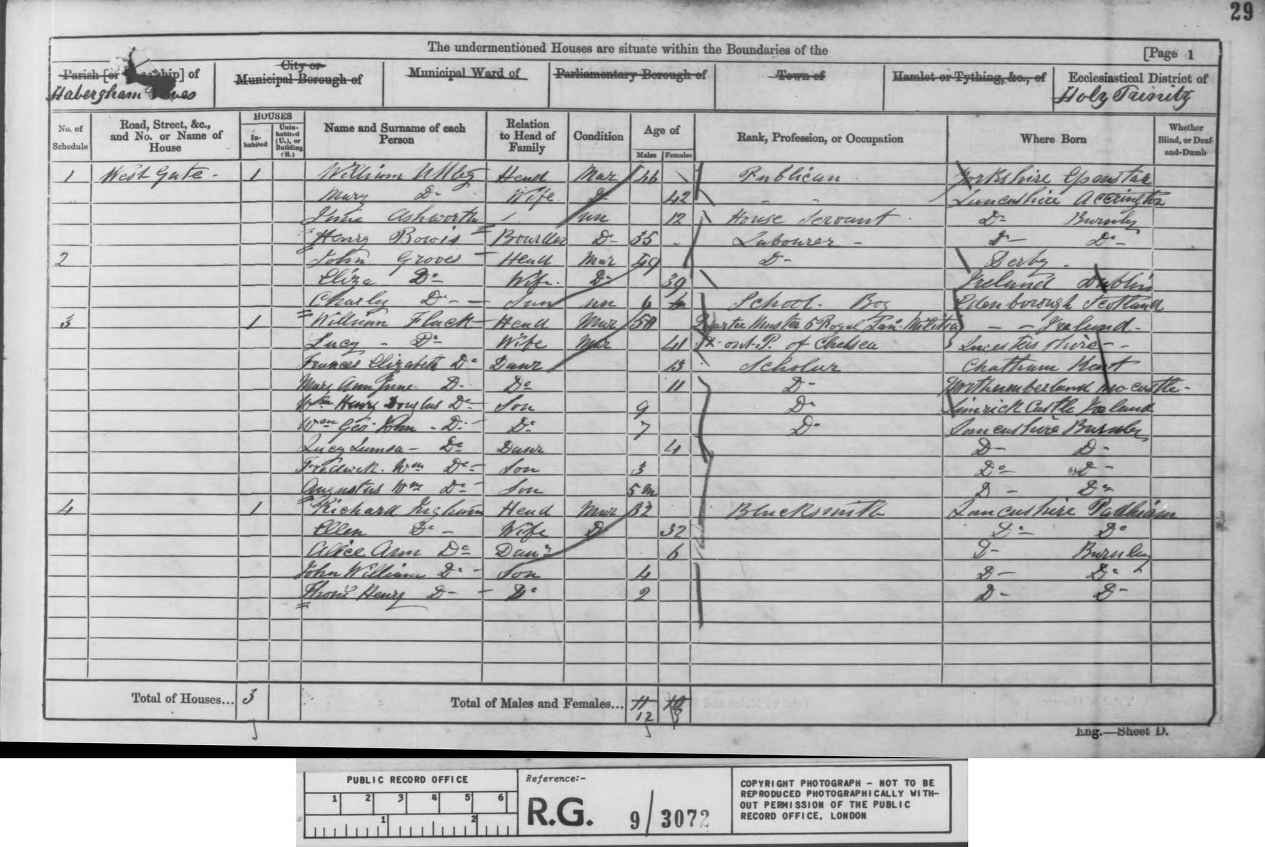 29
The undermentioned Houses are situate within the Boundaries of the [Page 1
Parish [or Township] of City or Municipal Borough of Municipal Ward of Parliamentary Borough of Town of Hamlet or Tything, &c., of Ecclesiastical District of
Habergham Eaves Holy Trinity
No. of Schedule Road, Street, &c., and No. or Name of House HOUSES Inhabited Uninhabited (U.), or Building (B.) Name and Surname of each Person Relation to Head of Family Condition Age of Males Females Rank, Profession, or Occupation Where Born Whether Blind, or Deaf-and-Dumb
1 West Gate - 1 William Utley Head Mar 46 Publican Yorkshire
Mary Do Wife Do 42 - - Lancashire Accrington
Ashworth un 12 House Servant Do Burnley
Henry Bowis Boarder D- 35 - Labourer - D- D-
2 John Groves Head Mar 49 D- Derby
Eliza Do Wife D- 39 Ireland Dublin
Charly D- - Son un 6 School Boy Edenborough Scotland
3 1 William Flack Head Mar 50 Quarter Master 5 Royal Militia - - Ireland -
Lucy - Do Wife Mar 41 out P. of Chelsea
Frances Elizabeth Do Daur 13 Scholar Chattham Kent
Mary Ann Jane D- Do 11 D- Northumberland
Wm Henry Douglas Do Son 9 Do Limrick Castle Ireland
Wm Geo John - D- Do 7 Do Lancashire Burnley
Lucy - Do Daur 4 D- D-
Fredrick Wm Do Son 3 Do D-
Augustus Wm Do Son 5m D- Do
4 1 Richard Head Mar 32 Blacksmith Lancashire Padiham
Ellen Do - Wife D 32 Do Do
Alice Ann Do Daur 6 D- Burnley
John William Do Son 4 D- Do
Thoms Henry D- - Do 2 D- D-
Total of Houses... 3 Total of Males and Females... 11 10
12
Eng.—Sheet D.
PUBLIC RECORD OFFICE
1 2 3 4 5 6
1 2
Reference:-
R.G. 9/3072
COPYRIGHT PHOTOGRAPH - NOT TO BE
REPRODUCED PHOTOGRAPHICALLY WITH-
OUT PERMISSION OF THE PUBLIC
RECORD OFFICE, LONDON